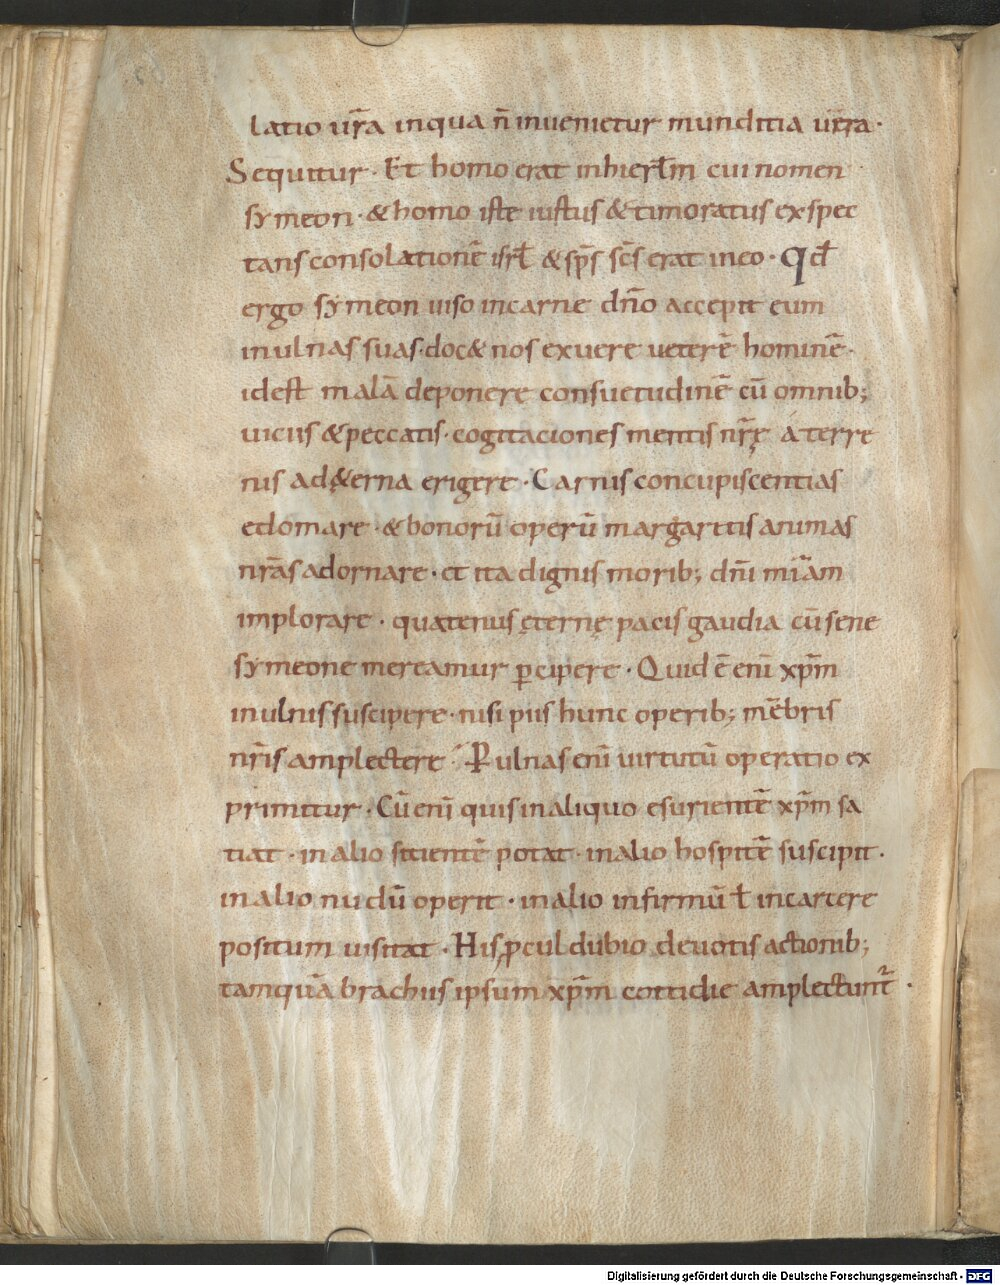 latio ur̅a inqua n̅ inuenietur munditia ur̅a·
Sequitur · Et homo erat inhierłm cui nomen
symeon · & homo iste iustus & timoratus exspec
tans consolationē isrł & sp̅s sc̅s erat ineo · Qd̵
ergo symeon uiso incarne dn̅o accepit eum
inulnas suas · doc& nos exuere ueterē hominē ·
idest malā deponere consuetudinē cū omnib;
uiciis & peccatis · cogitaciones mentis nr̅ę á terre
nis ad&erna erigere · Carnis concupiscentias
edomare · & bonorū operū margaritis animas
nr̅as adornare · et ita dignis morib; dn̅i mi̅am
implorare · quatenus ęternę pacis gaudia cū sene
symeone mereamur ꝑcipere · Quid ē eni̅ xp̅m
inulnis suscipere · nisi piis hunc operib; mēbris
nr̅is amplectere · Ꝑ ulnas eni̅ uirtutū operatio ex
primitur · Cū eni̅ quis inaliquo esurientē xp̅m sa
tiat · inalio sitientē potat · inalio hospitē suscipit ·
inalio nudū operit · inalio infirmū ł incarcere
positum uisitat · His ꝓcul dubio deuotis actionib;
tamquā brachiis ipsum xp̅m cottidie amplectunt᷑ ·
Digitalisierung gefördert durch die Deutsche Forschungsgemeinschaft - DFG